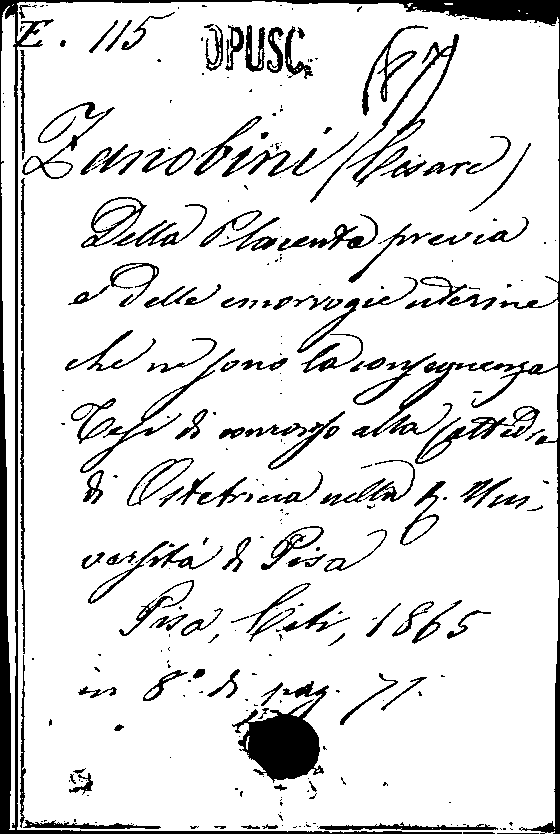 E. 115
OPUSC.
(87)
Zanobini (Cesare)
Della Placenta previa
e delle emorragie uterine
che ne sono la conseguenza
Tesi di concorso alla Cattedra
di Ostetricia nella R. Uni-
versità di Pisa
Pisa, Citi, 1865
in 8.° di pag. 71.